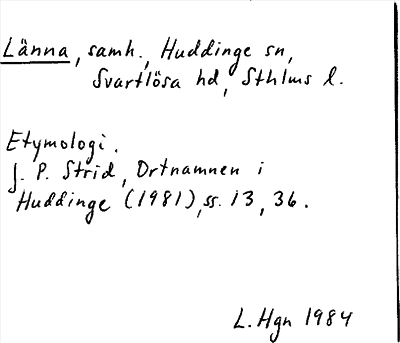 Länna, samh., Huddinge sn,
Svartlösa hd, Sthlms l.
Etymologi.
J. P. Strid, Ortnamnen i
Huddinge (1981), ss. 13, 36.
L. Hgn 1984